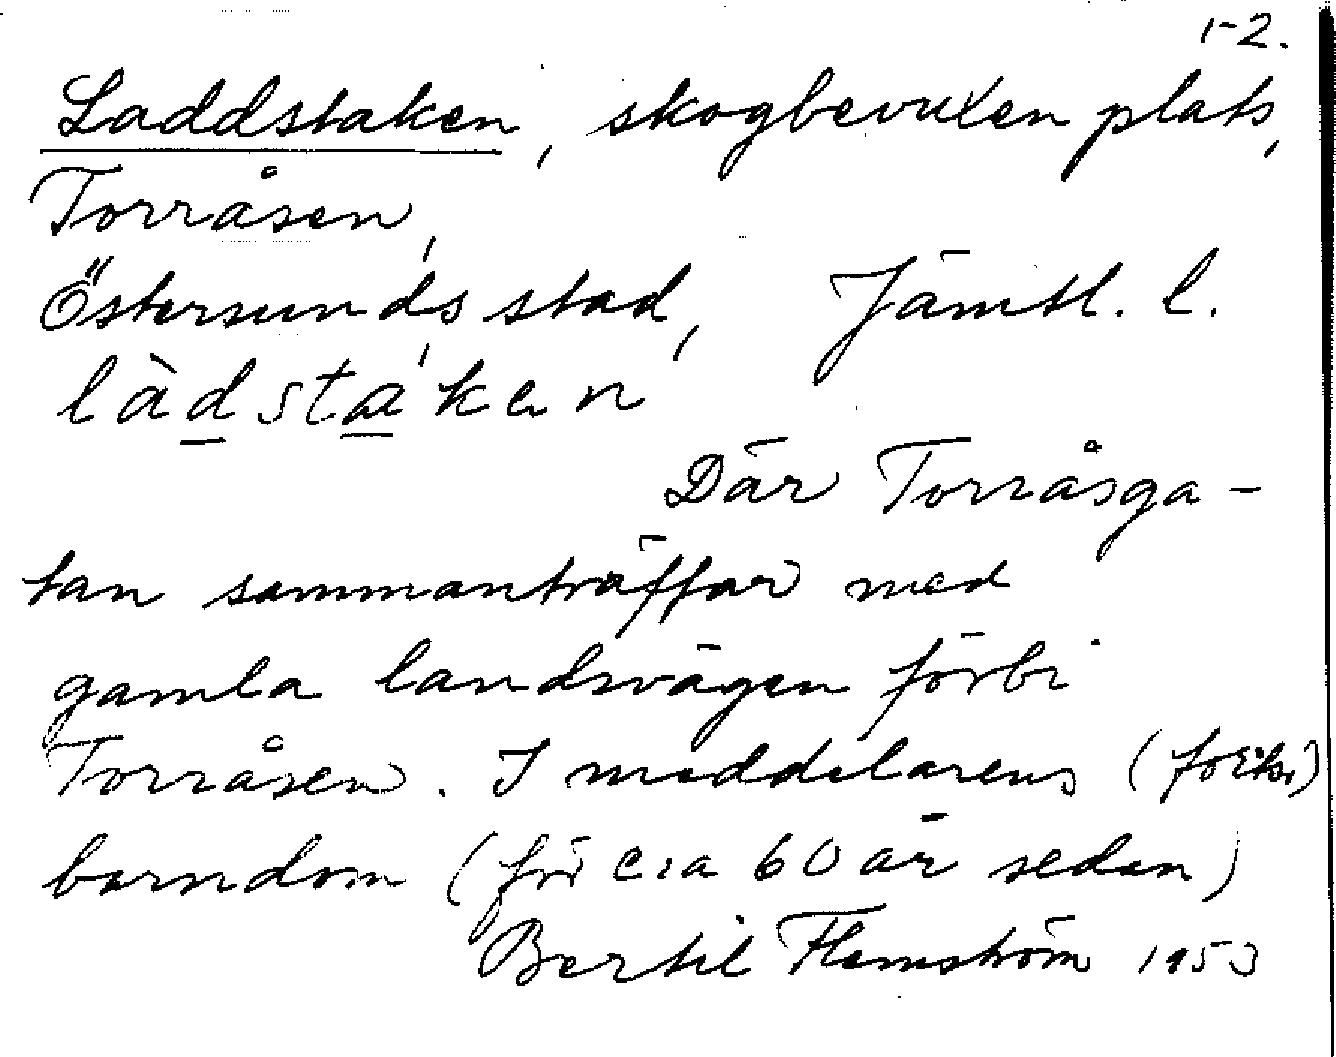 1-2.
Laddstaken, skogbevuxen plats,
Torråsen,
Östersunds stad, Jämtl. l.
làdstáken
Där Torråsga-
tan sammanträffar med
gamla landsvägen förbi
Torråsen. I meddelarens
barndom (för c:a 60 år sedan)
Bertil Flemström 1953